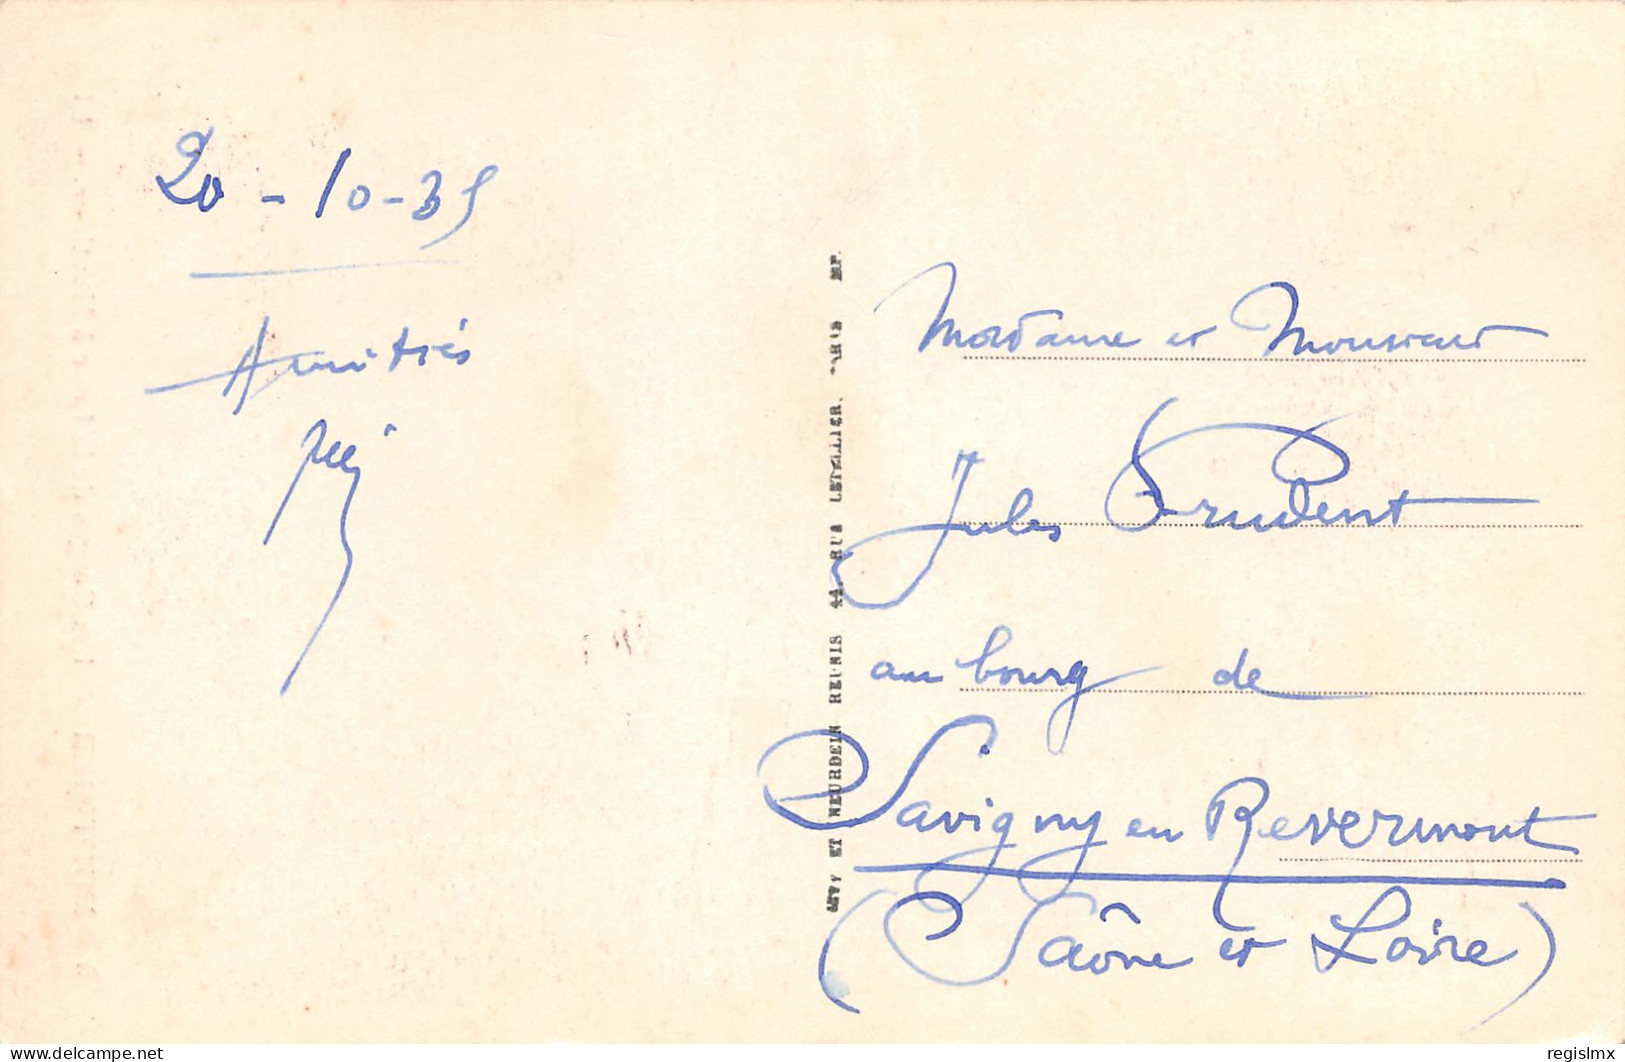 20-10-35
Amitiés
Madame et Monsieur
Jules Prudent
au bourg de
Savigny en Revermont
(Saône et Loire)
LEVY ET NEURDEIN REUNIS 44, RUE LETELLIER, PARIS IMP.
delcampe.net
regislmx